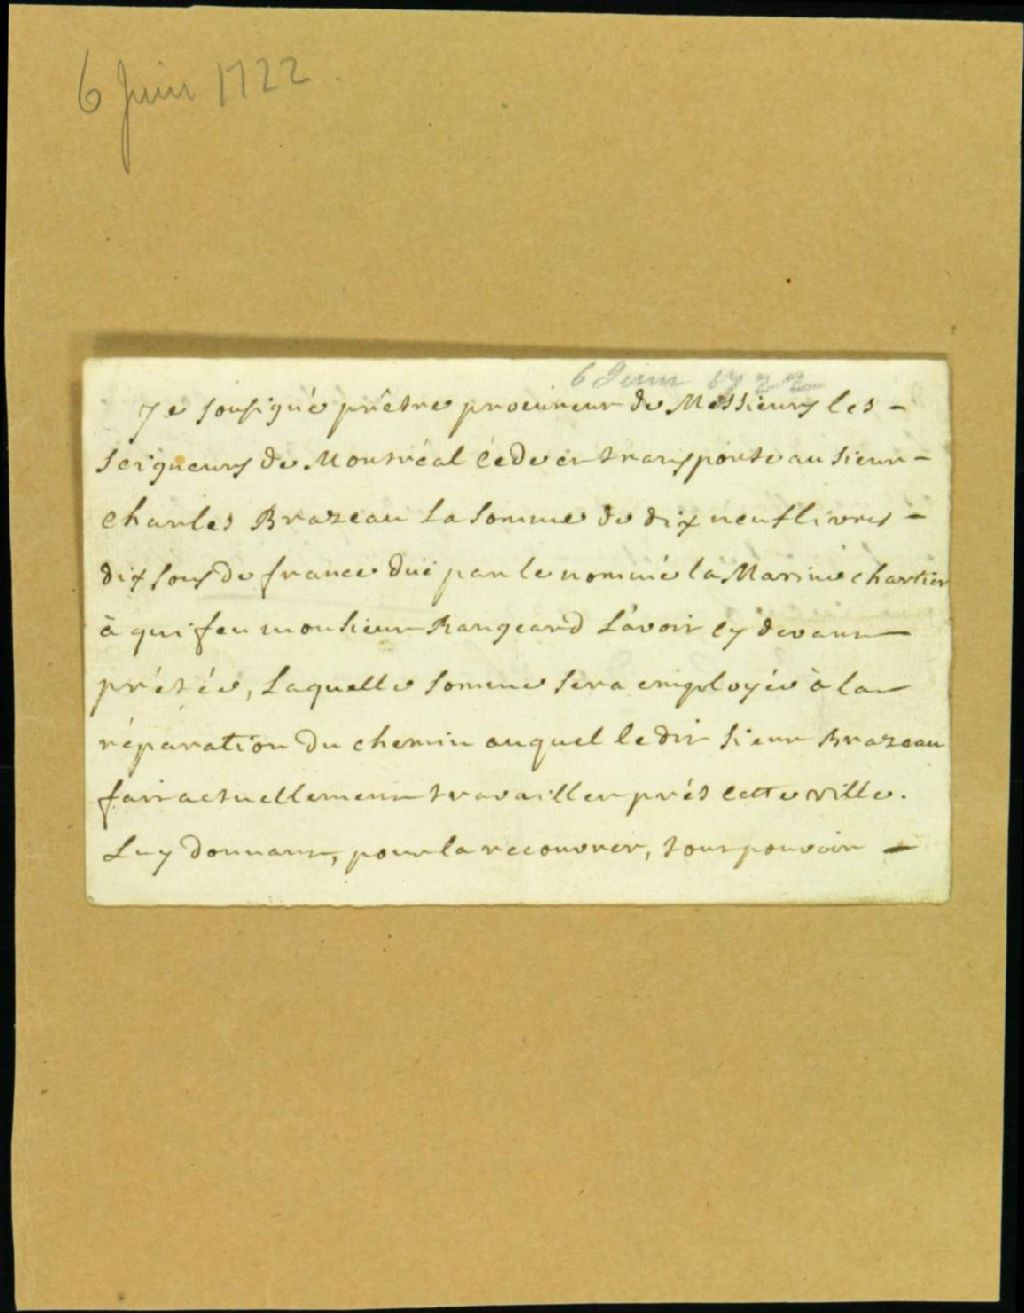 6 Juin 1722
6 Juin 1722
Je sousigné prêtre procureur de Messieurs les -
Seigneurs de Montréal cède et transporte au Sieur -
Charles Brazeau la somme de dix neuf livres -
dix sous de france düe par le nommé la Marine chartier
à qui feu monsieur Rangeard l'avoit cy devant
prétée, laquelle somme sera employée à la
réparation du chemin auquel le dit Sieur Brazeau
fait actuellement travailler prés cette ville.
Luy donnant, pour la recouvrer, tout pouvoir -